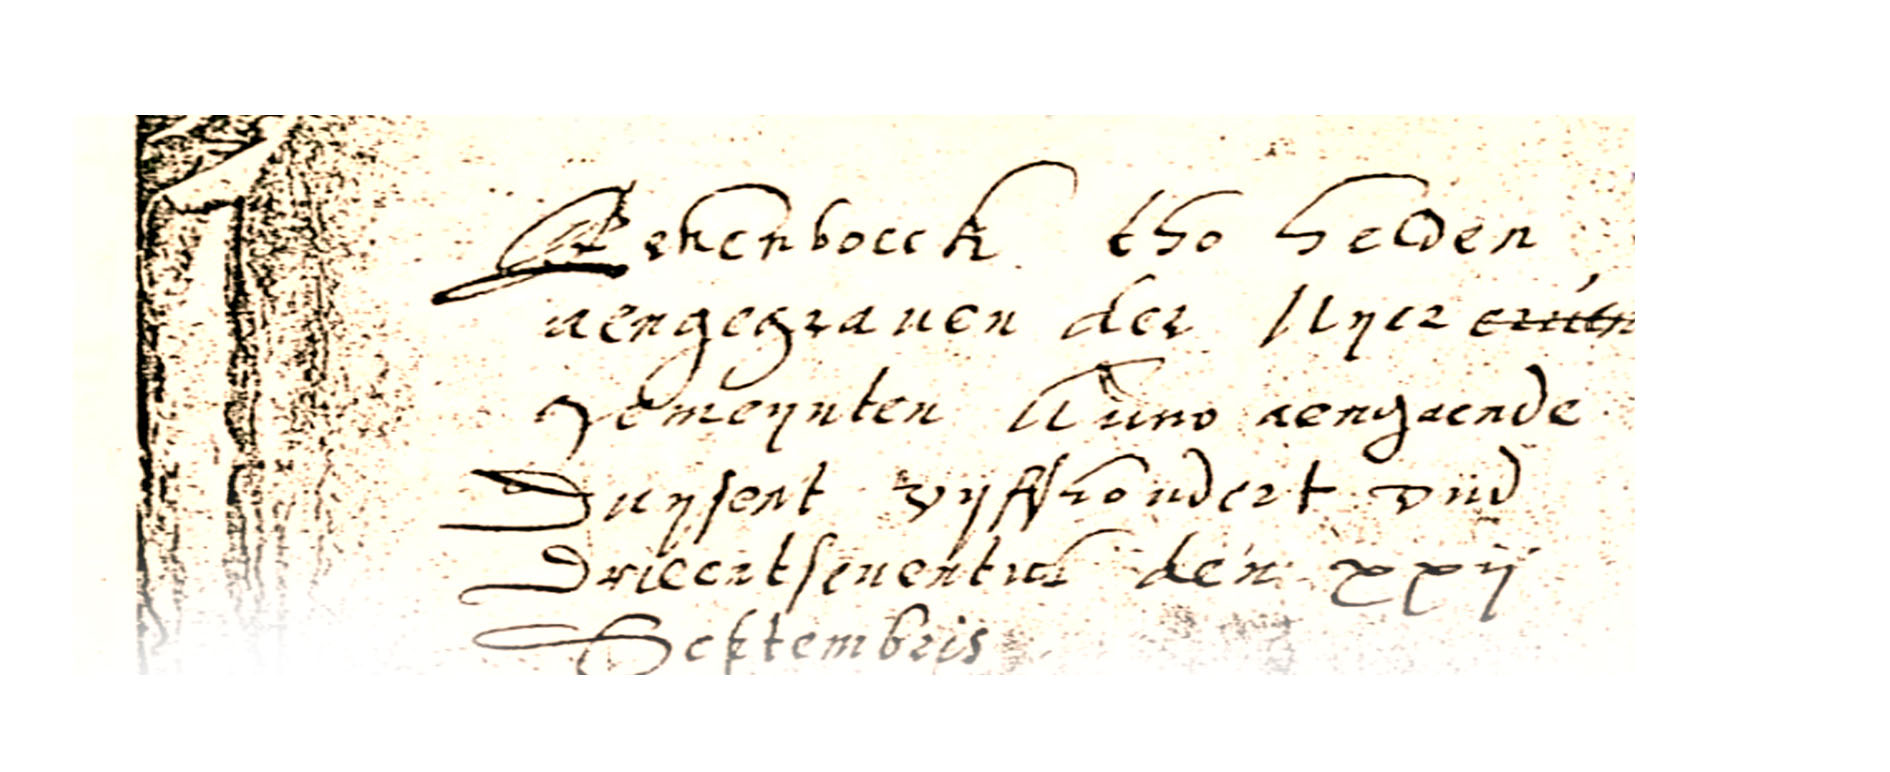 Rekenboeck tho helden
aengegrauen der Nyer
gemeynten Anno aengaende
Duysent vyffhondert vnd
Drieentseuentich den xxij
Septembris